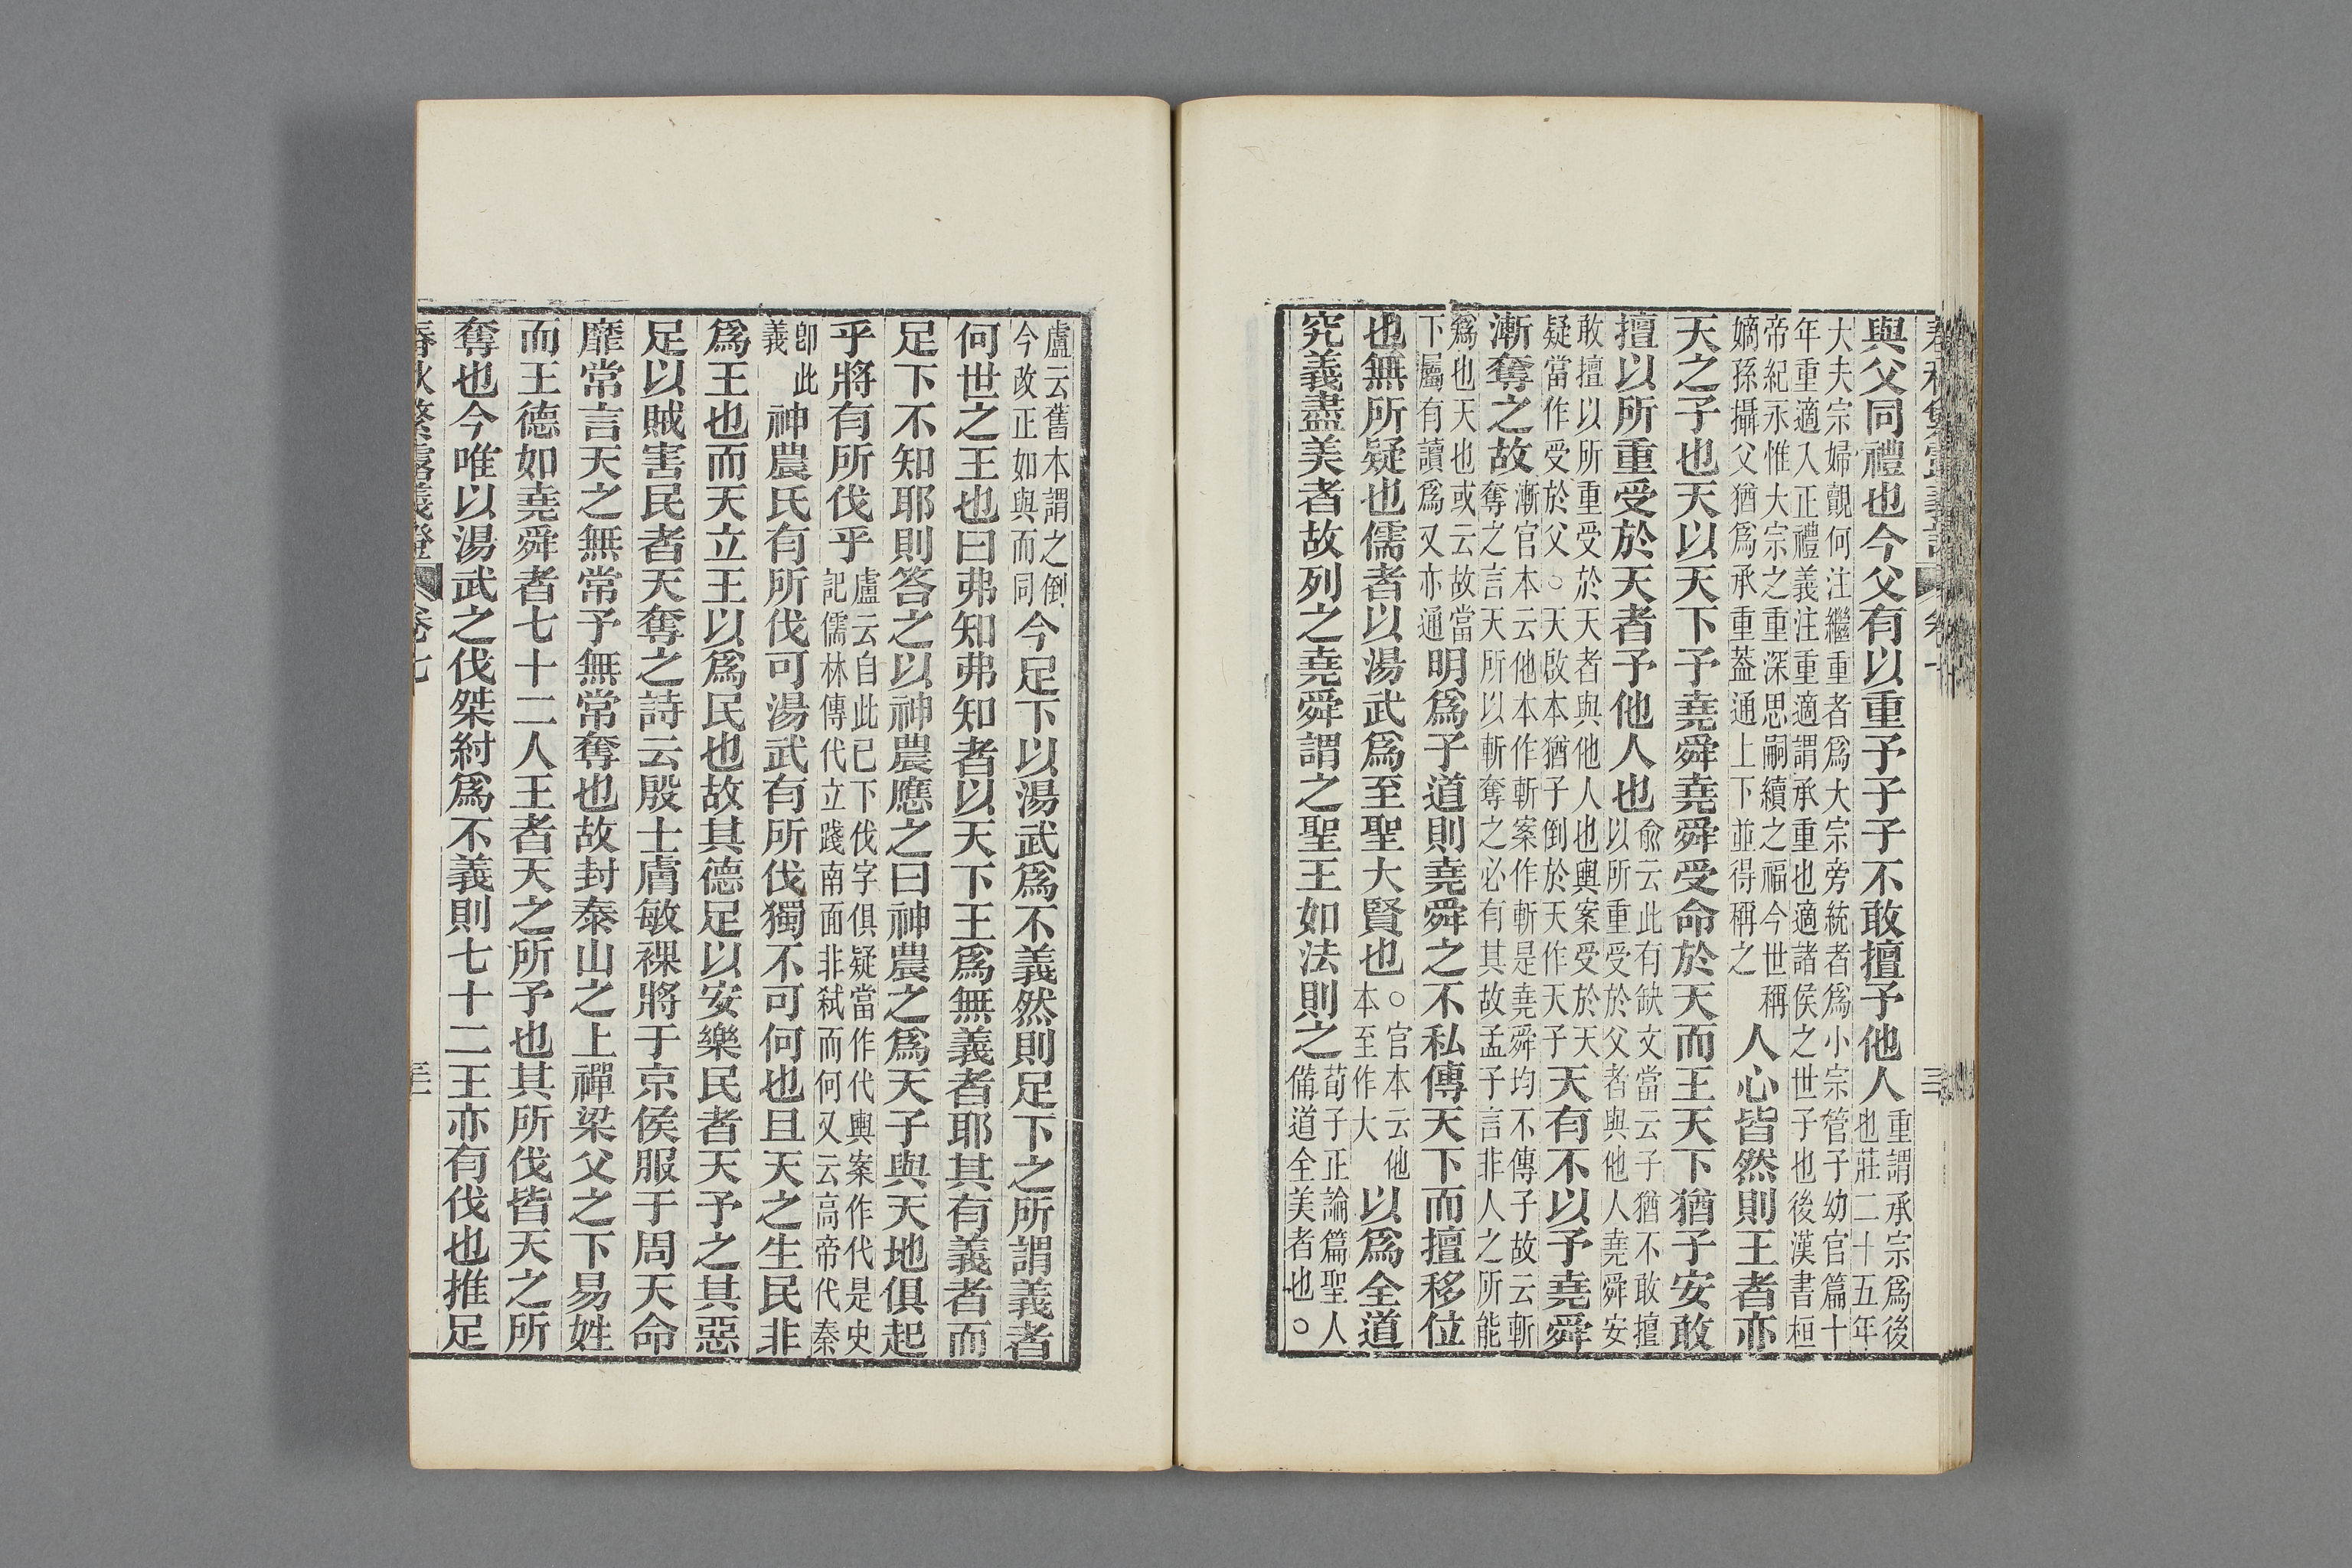 與父同禮也今父有以重予子子不敢擅予他人重謂承宗爲後也莊二十五年
大夫宗婦覿何注繼重者爲大宗旁統者爲小宗管子幼官篇十
年重適入正禮義注重適謂承重也適諸侯之世子也後漢書桓
帝紀永惟大宗之重深思嗣續之福今世稱嫡孫攝父猶爲承重葢通上下並得稱之人心皆然則王者亦
天之子也天以天下予堯舜堯舜受命於天而王天下猶子安敢
擅以所重受於天者予他人也俞云此有缺文當云子猶不敢擅以所重受於父者與他人堯舜安
敢擅以所重受於天者與他人也輿案受於天疑當作受於父○天啟本猶子倒於天作天子天有不以予堯舜
漸奪之故漸官本云他本作斬案作斬是堯舜均不傳子故云斬奪之言天所以斬奪之必有其故孟子言非人之所能
爲也天也或云故當下屬有讀爲又亦通明爲子道則堯舜之不私傳天下而擅移位
也無所疑也儒者以湯武爲至聖大賢也○官本云他本至作大以爲全道
究義盡美者故列之堯舜謂之聖王如法則之荀子正論篇聖人備道全美者也○
盧云舊本謂之倒今改正如與而同今足下以湯武爲不義然則足下之所謂義者
何世之王也曰弗知弗知者以天下王爲無義者耶其有義者而
足下不知耶則答之以神農應之曰神農之爲天子與天地俱起
乎將有所伐乎盧云自此已下伐字俱疑當作代輿案作代是史記儒林傳代立踐南面非弒而何又云高帝代秦
卽此義神農氏有所伐可湯武有所伐獨不可何也且天之生民非
爲王也而天立王以爲民也故其德足以安樂民者天予之其惡
足以賊害民者天奪之詩云殷士膚敏祼將于京侯服于周天命
靡常言天之無常予無常奪也故封泰山之上禪梁父之下易姓
而王德如堯舜者七十二人王者天之所予也其所伐皆天之所
奪也今唯以湯武之伐桀紂爲不義則七十二王亦有伐也推足
春秋繁露義證 卷七